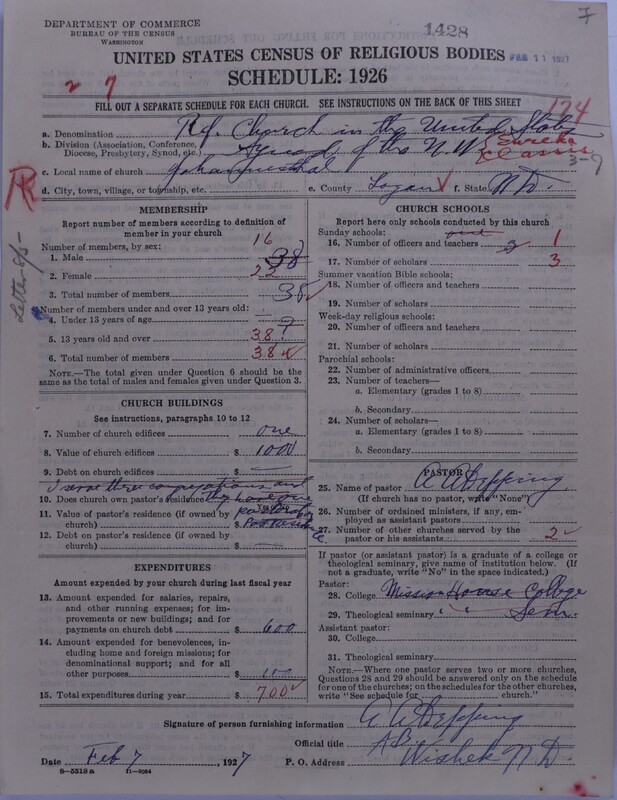 7
DEPARTMENT OF COMMERCE
BUREAU OF THE CENSUS
WASHINGTON
1428
UNITED STATES CENSUS OF RELIGIOUS BODIES FEB 11 1927
SCHEDULE: 1926
2 7
FILL OUT A SEPARATE SCHEDULE FOR EACH CHURCH. SEE INSTRUCTIONS ON THE BACK OF THIS SHEET
174
a. Denomination Ref. Church in the United States
b. Division (Association, Conference, Diocese, Presbytery, Synod, etc.) Synod of the N.W. Eureka Classis
3-9
c. Local name of church Johannesthal
d. City, town, village, or township, etc. e. County Logan f. State N.D.
R
Letter 8/5-
MEMBERSHIP
Report number of members according to definition of
member in your church
Number of members, by sex: 16
1. Male 38
2. Female 22
3. Total number of members 38
Number of members under and over 13 years old:
4. Under 13 years of age ?
5. 13 years old and over 38
6. Total number of members 38
NOTE.—The total given under Question 6 should be
the same as the total of males and females given under Question 3.
CHURCH BUILDINGS
See instructions, paragraphs 10 to 12
7. Number of church edifices one
8. Value of church edifices $ 1000
9. Debt on church edifices $ —
I serve three congregations and
10. Does church own pastor's residence? they have one
11. Value of pastor's residence (if owned by
church) $
12. Debt on pastor's residence $
EXPENDITURES
Amount expended by church during last fiscal year
13. Amount expended for salaries, repairs,
and other running expenses; for im-
provements or new buildings; and for
payments on church debt $ 600
14. Amount expended for benevolences, in-
cluding home and foreign missions; for
denominational support; and for all
other purposes $ 100
15. Total expenditures during year $ 700
CHURCH SCHOOLS
Report here only schools conducted by this church
Sunday schools:
16. Number of officers and teachers 3 1
17. Number of scholars 3
Summer vacation Bible schools:
18. Number of officers and teachers
19. Number of scholars
Week-day religious schools:
20. Number of officers and teachers
21. Number of scholars
Parochial schools:
22. Number of administrative officers
23. Number of teachers—
a. Elementary (grades 1 to 8)
b. Secondary
24. Number of scholars—
a. Elementary (grades 1 to 8)
b. Secondary
PASTOR
25. Name of pastor A A Depping
(If church has no pastor, write "None")
26. Number of ordained ministers, if any, em-
ployed as assistant pastors
27. Number of other churches served by the
pastor or his assistants 2
If pastor (or assistant pastor) is a graduate of a college or
theological seminary, give name of institution below. (If
not a graduate, write "No" in the space indicated.)
Pastor:
28. College Mission House College
29. Theological seminary " " Sem.
Assistant pastor:
30. College
31. Theological seminary
NOTE.—Where one pastor serves two or more churches,
Questions 28 and 29 should be answered only on the schedule
for one of the churches; on the schedules for the other churches,
write "See schedule for church."
Signature of person furnishing information A A Depping
Official title
Date Feb 7, 1927 P. O. Address Wishek N.D.
8-5518a 11-9084